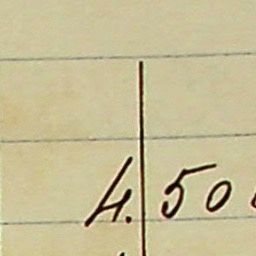 4. 50